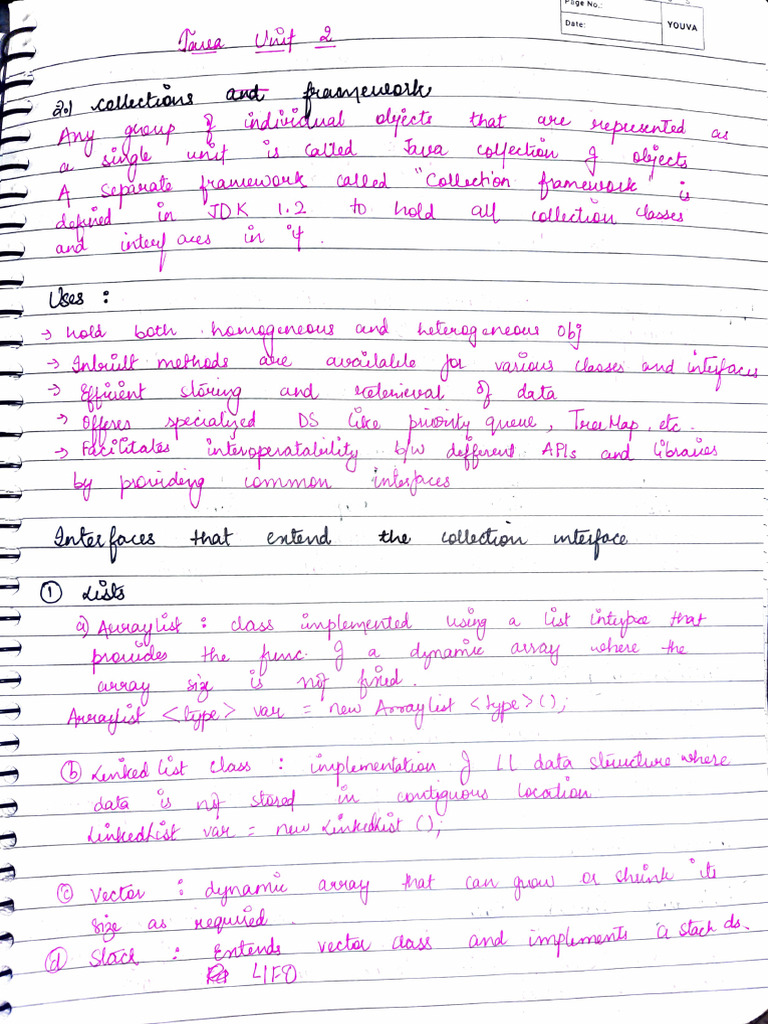 Page No.:
Date:
YOUVA
Java Unit 2
2.1 collections framework
Any group of individual objects that are represented as
a single unit is called Java collection of objects
A separate framework called "Collection framework" is
defined in JDK 1.2 to hold all collection classes
and interfaces in it.
Uses :
→ hold both homogeneous and heterogeneous obj
→ Inbuilt methods are available for various classes and interfaces
→ Efficient storing and retrieval of data
→ Offers specialized DS like priority queue, TreeMap, etc.
→ Facilitates interoperatability b/w different APIs and libraries
by providing common interfaces
Interfaces that extend the collection interface
① Lists
a) ArrayList : class implemented using a list interface that
provides the func. of a dynamic array where the
array size is not fixed.
ArrayList <type> var = new ArrayList <type>();
ⓑ Linked list class : implementation of LL data structure where
data is not stored in contiguous location
LinkedList var = new LinkedList ();
ⓒ Vector : dynamic array that can grow or shrink its
size as required.
ⓓ Stack : Extends vector class and implements a stack ds.
LIFO